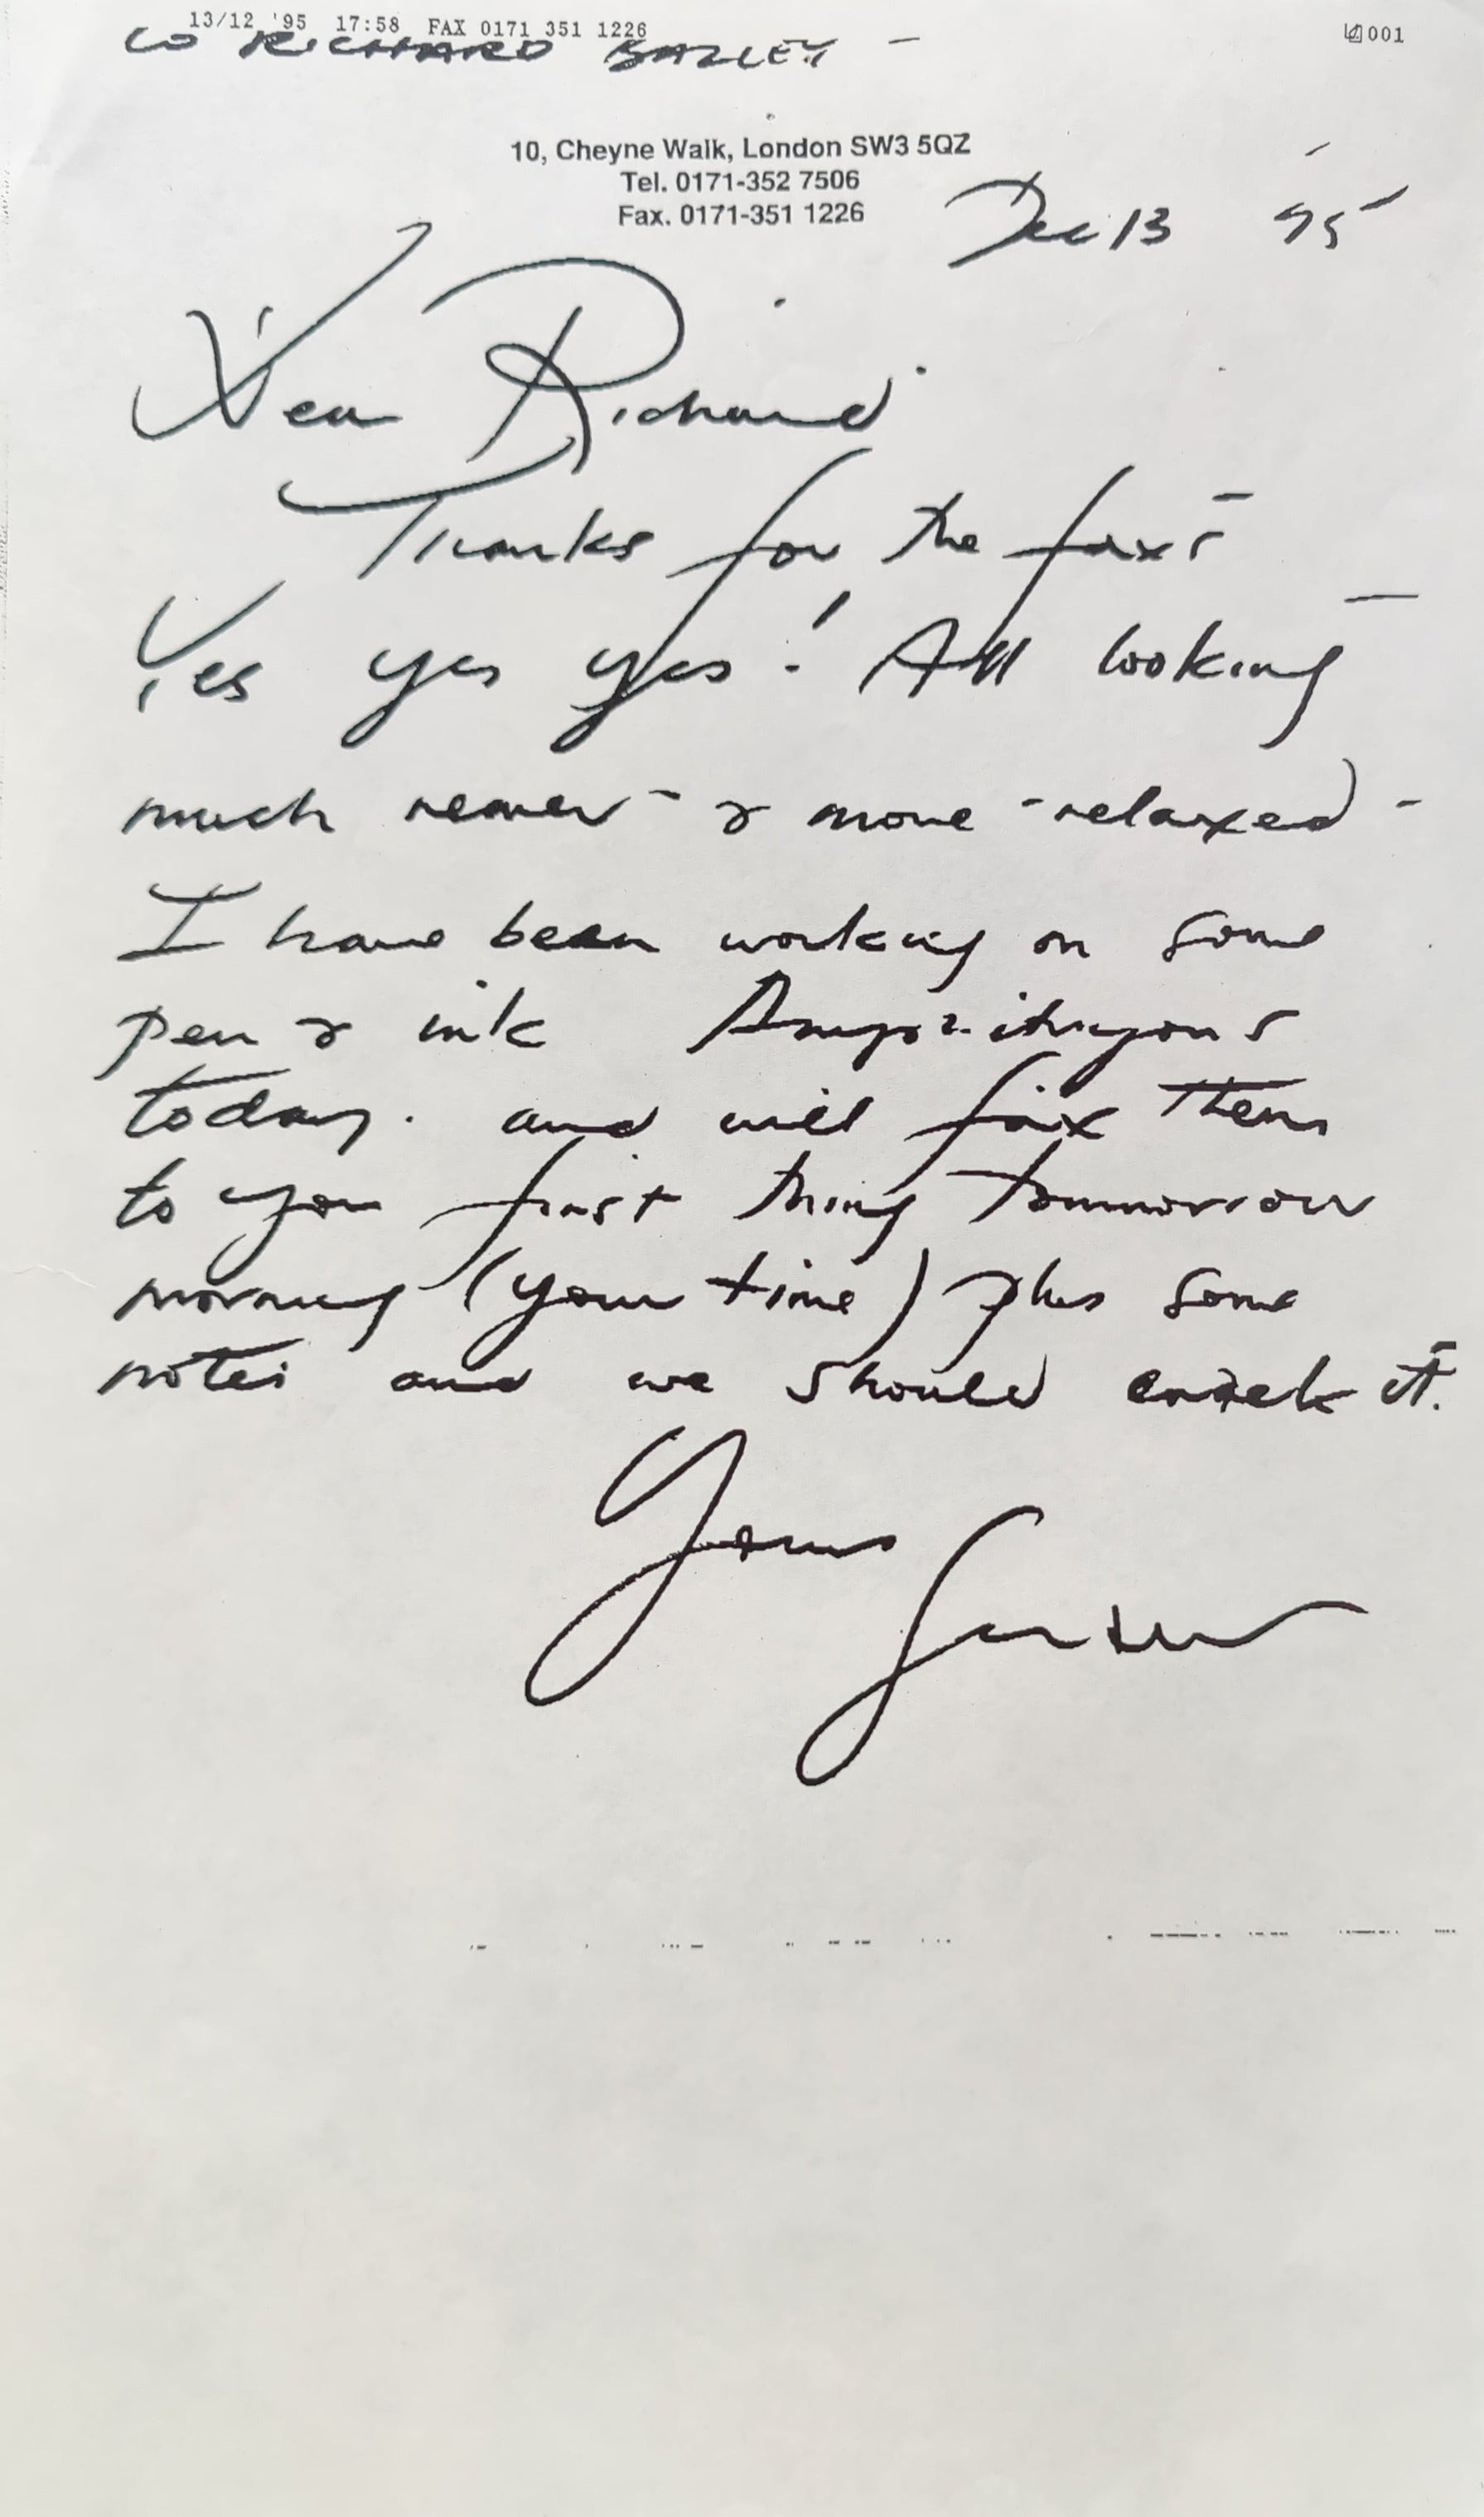 13/12 '95 17:58 FAX 0171 351 1226 001
to RICHARD BAZLEY -
10, Cheyne Walk, London SW3 5QZ
Tel. 0171-352 7506
Fax. 0171-351 1226
Dec 13 95
Dear Richard
Thanks for the faxs -
Yes yes yes! All looking -
much & more relaxed -
I have been working on some
pen & ink
today. and will fax them
to you first thing tommorrow
morning (your time) plus some
notes and we should crack it.
Yours